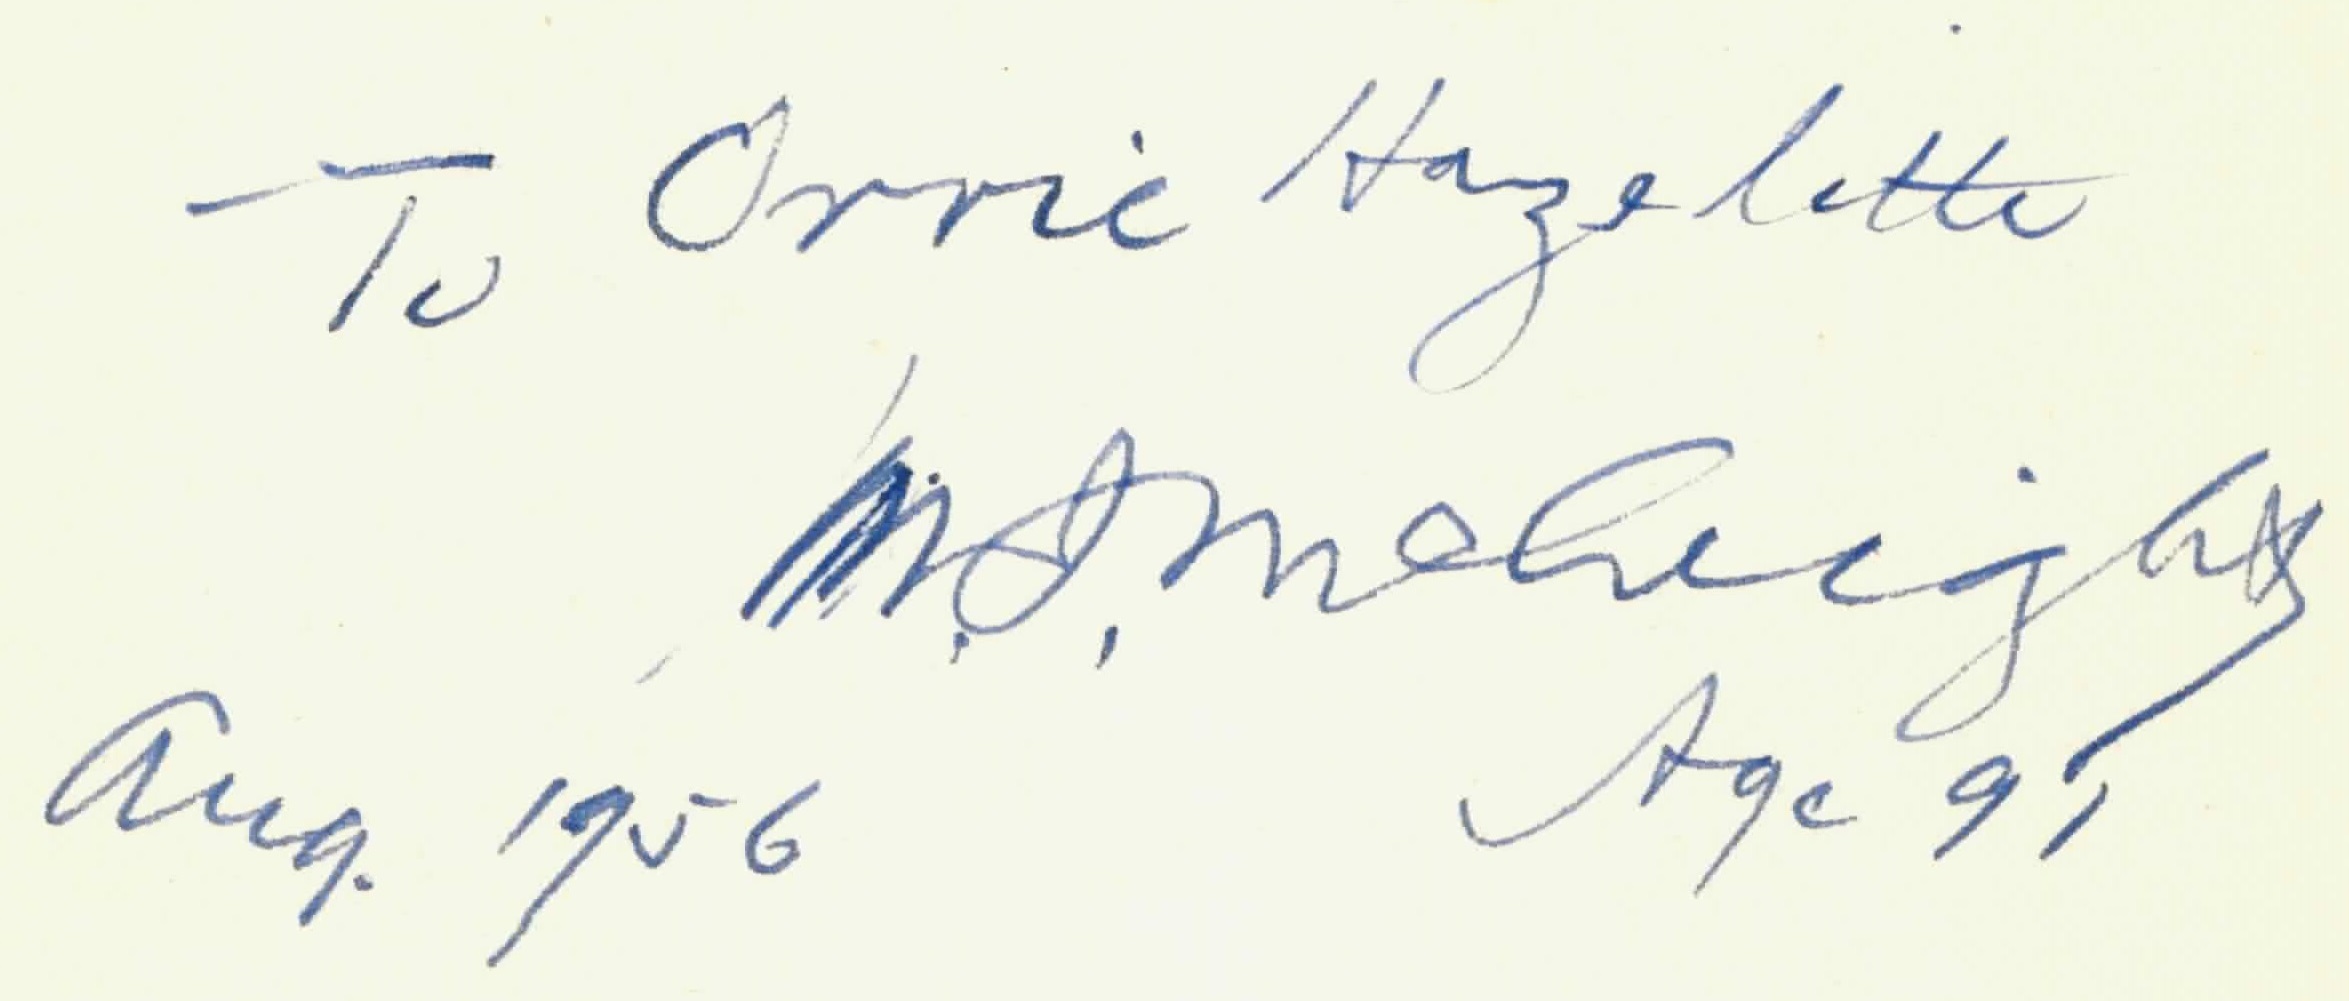 To Orrie Hazelette
M. S. McCreight
Aug. 1956 Age 91